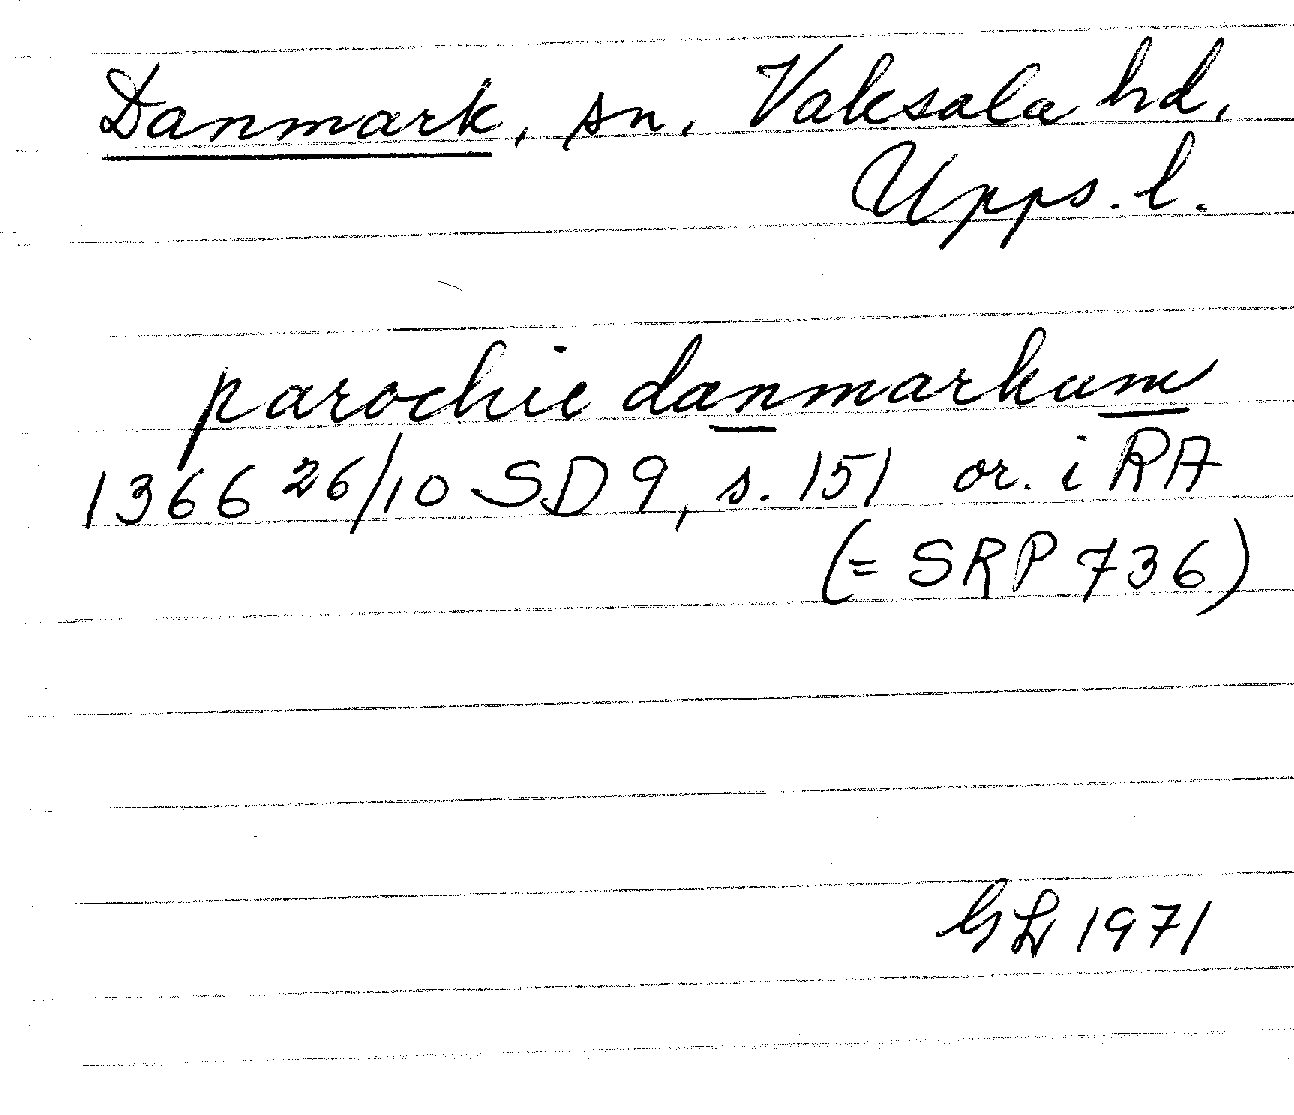 Danmark, sn, Vaksala hd,
Upps. l.
parochie danmarkum
1366 26/10 SD 9, s. 151 or. i RA
(= SRP 736)
GL 1971